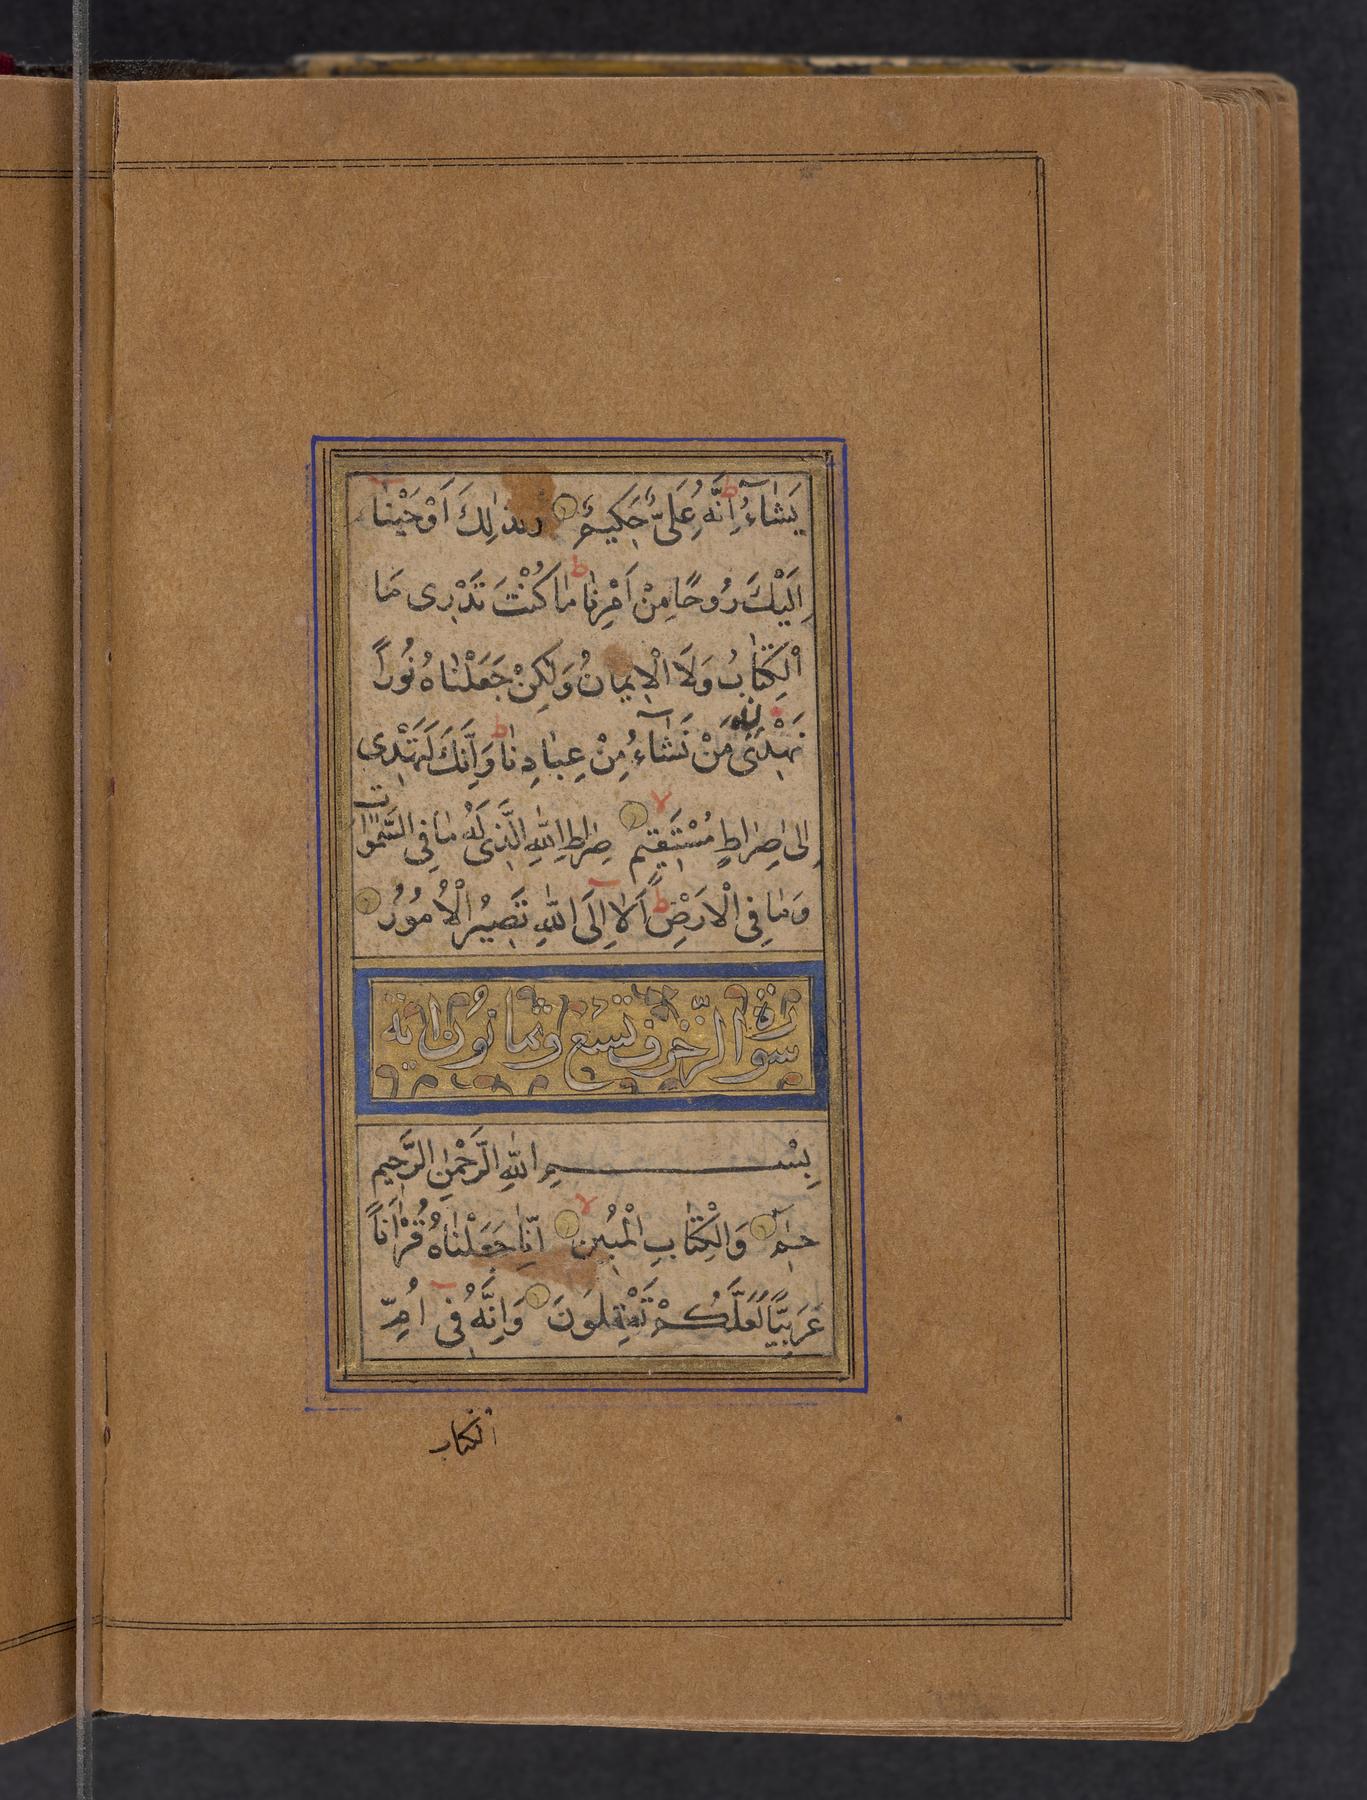 يَشٰاۤءُ اِنَّهُ عَلِىٌّ حَكِيمٌ وَكَذٰلِكَ اَوْحَيْنٰا
اِلَيْكَ رُوحًا مِنْ اَمْرِنٰا مٰا كُنْتَ تَدْرِى مَا
الْكِتٰابُ وَلَا الْاِيمٰانُ وَلٰكِنْ جَعَلْنٰاهُ نُورًا
نَهْدِى بِهِ مَنْ نَشٰاۤءُ مِنْ عِبٰادِنٰا وَاِنَّكَ لَتَهْدِى
اِلىٰ صِرٰاطٍ مُسْتَقِيمٍ صِرٰاطِ اللّٰهِ الَّذِى لَهُ مٰا فِى السَّمٰوٰاتِ
وَمٰا فِى الْاَرْضِ اَلٰا اِلَى اللّٰهِ تَصِيرُ الْاُمُورُ
سورة الزّخرف تسع وثمانون اية
بِسْمِ اللّٰهِ الرَّحْمٰنِ الرَّحِيمِ
حٰمۤ وَالْكِتٰابِ الْمُبِينِ اِنّٰا جَعَلْنٰاهُ قُرْاٰنًا
عَرَبِيًّا لَعَلَّكُمْ تَعْقِلُونَ وَاِنَّهُ فِى اُمِّ
الكتاب